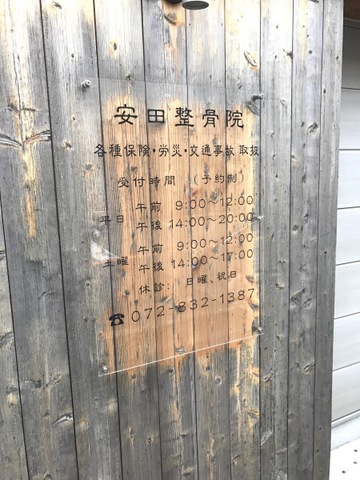 安田整骨院
各種保険・労災・交通事故 取扱
受付時間 (予約制)
平日 午前 9:00~12:00
午後 14:00~20:00
土曜 午前 9:00~12:00
午後 14:00~17:00
休診: 日曜、祝日
☎072-832-1387